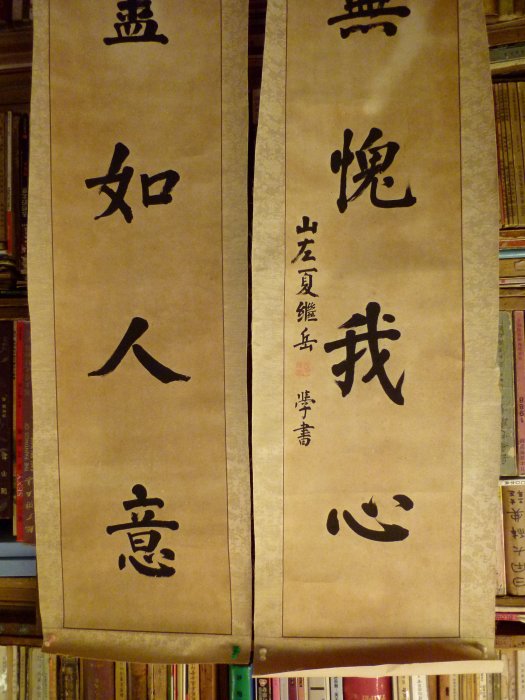 盡如人意
無愧我心
山左夏繼岳 學書